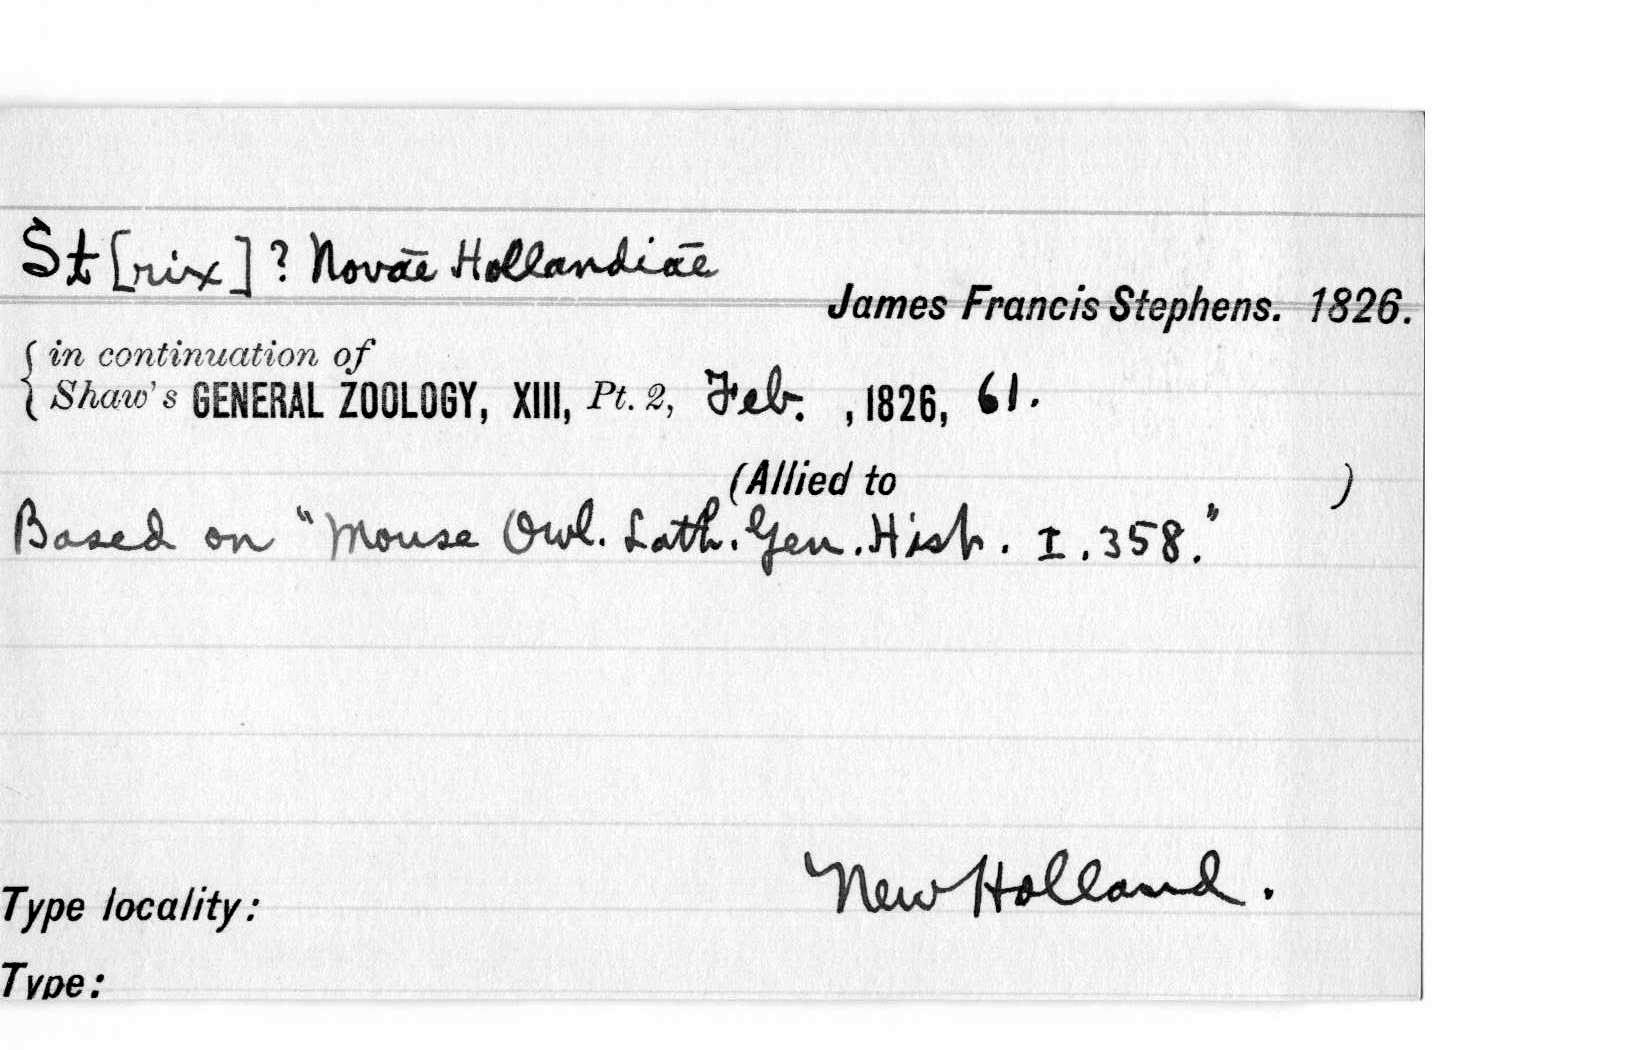 St[rix]? Novae Hollandiae
James Francis Stephens. 1826.
in continuation of
Shaw's GENERAL ZOOLOGY, XIII, Pt. 2, Feb. , 1826, 61.
(Allied to )
Based on "Mouse Owl. Lath. Gen. Hist. I. 358."
New Holland.
Type locality:
Type: